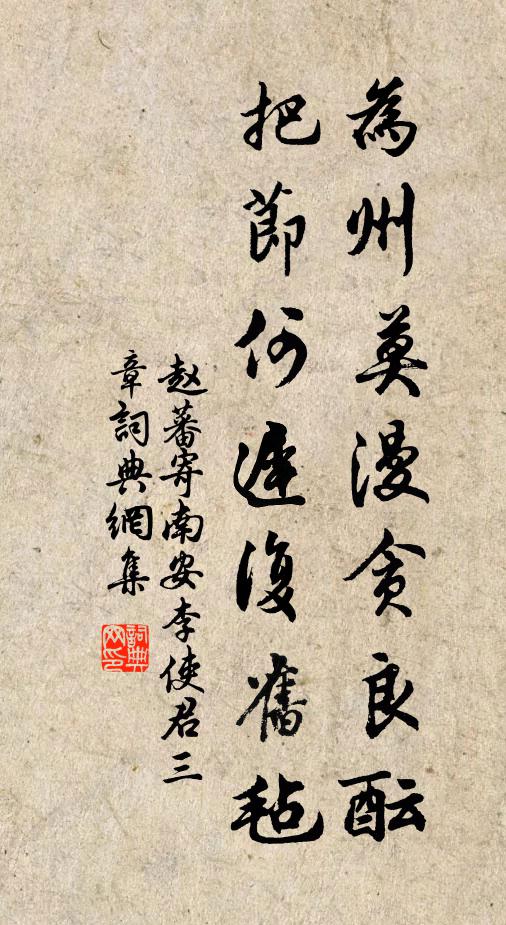 為州莫漫貪良酝
把節何遲復舊毡
赵蕃寄南安李使君三
章詞典網集
詞典網印